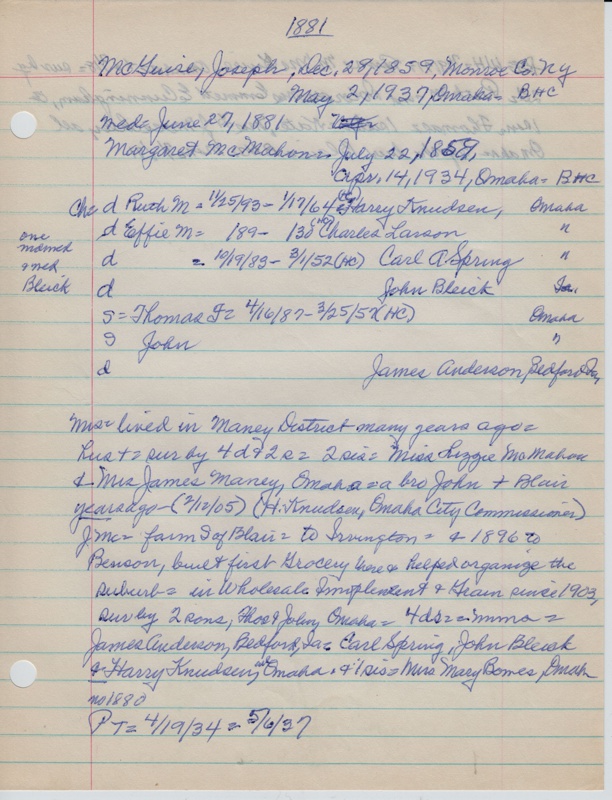 1881
McGuire, Joseph, Dec, 28, 1859, Monroe Co. Ny
May 2, 1937, Omaha = BHC
wed = June 27, 1881
Margaret McMahon = July 22, 1859,
Apr, 14, 1934, Omaha = BHC
Ch = d Ruth M = 11/25/93 - 1/17/64 (HC) Harry Knudsen, Omaha
d Effie M = 189 - 130 Charles Larson "
one married & ned Bleick
d = 10/19/83 - 3/1/52 (HC) Carl A Spring "
d John Bleick Ia.
s = Thomas F = 4/16/87 - 3/25/57 (HC) Omaha
John "
d James Anderson, Bedford Ia,
Mrs = lived in Maney District many years ago =
Hus + = sur by 4d + 2s = 2 sis = Miss Lizzie McMahon
& Mrs James Maney, Omaha = a bro John + Blair
years ago - (2/12/05) (H. Knudsen, Omaha City Commissioner)
J Mc = farm S of Blair = to Irvington = & 1896 to
Benson, built first Grocery there & helped organize the
suburb = in Wholesale Implement & Grain since 1903,
sur by 2 sons, Thos & John, Omaha = 4ds = mmo =
James Anderson, Bedford, Ia = Carl Spring, John Bleick
& Harry Knudsen, Omaha. & 1 sis = Mrs Mary Bowes, Omaha
no 1880
PT = 4/19/34 = 5/6/37